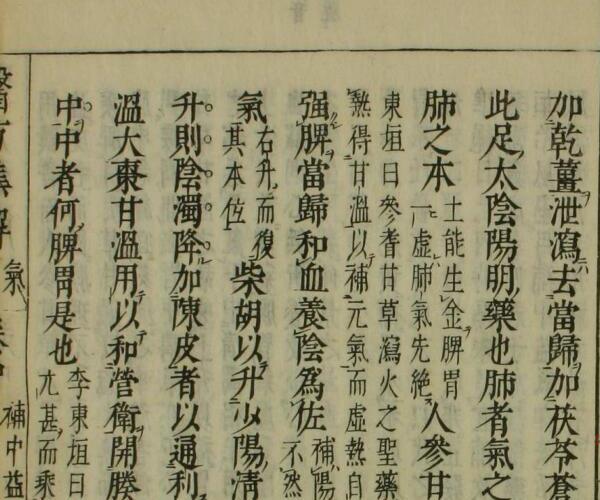 加乾薑泄瀉去當歸加茯苓蒼
此足太陰陽明藥也肺者氣之
肺之本
土能生金脾胃
一虛肺氣先絕
人參甘
東垣曰參耆甘草瀉火之聖藥
熱得甘溫以補元氣而虛熱自
强脾當歸和血養陰爲佐
補陽
不然
氣
右升而復
其本佐
柴胡以升少陽淸
升則陰濁降加陳皮者以通利
溫大棗甘溫用以和營衛開腠
中中者何脾胃是也
李東垣曰
尤甚而乘
醫方集解
氣
補中益